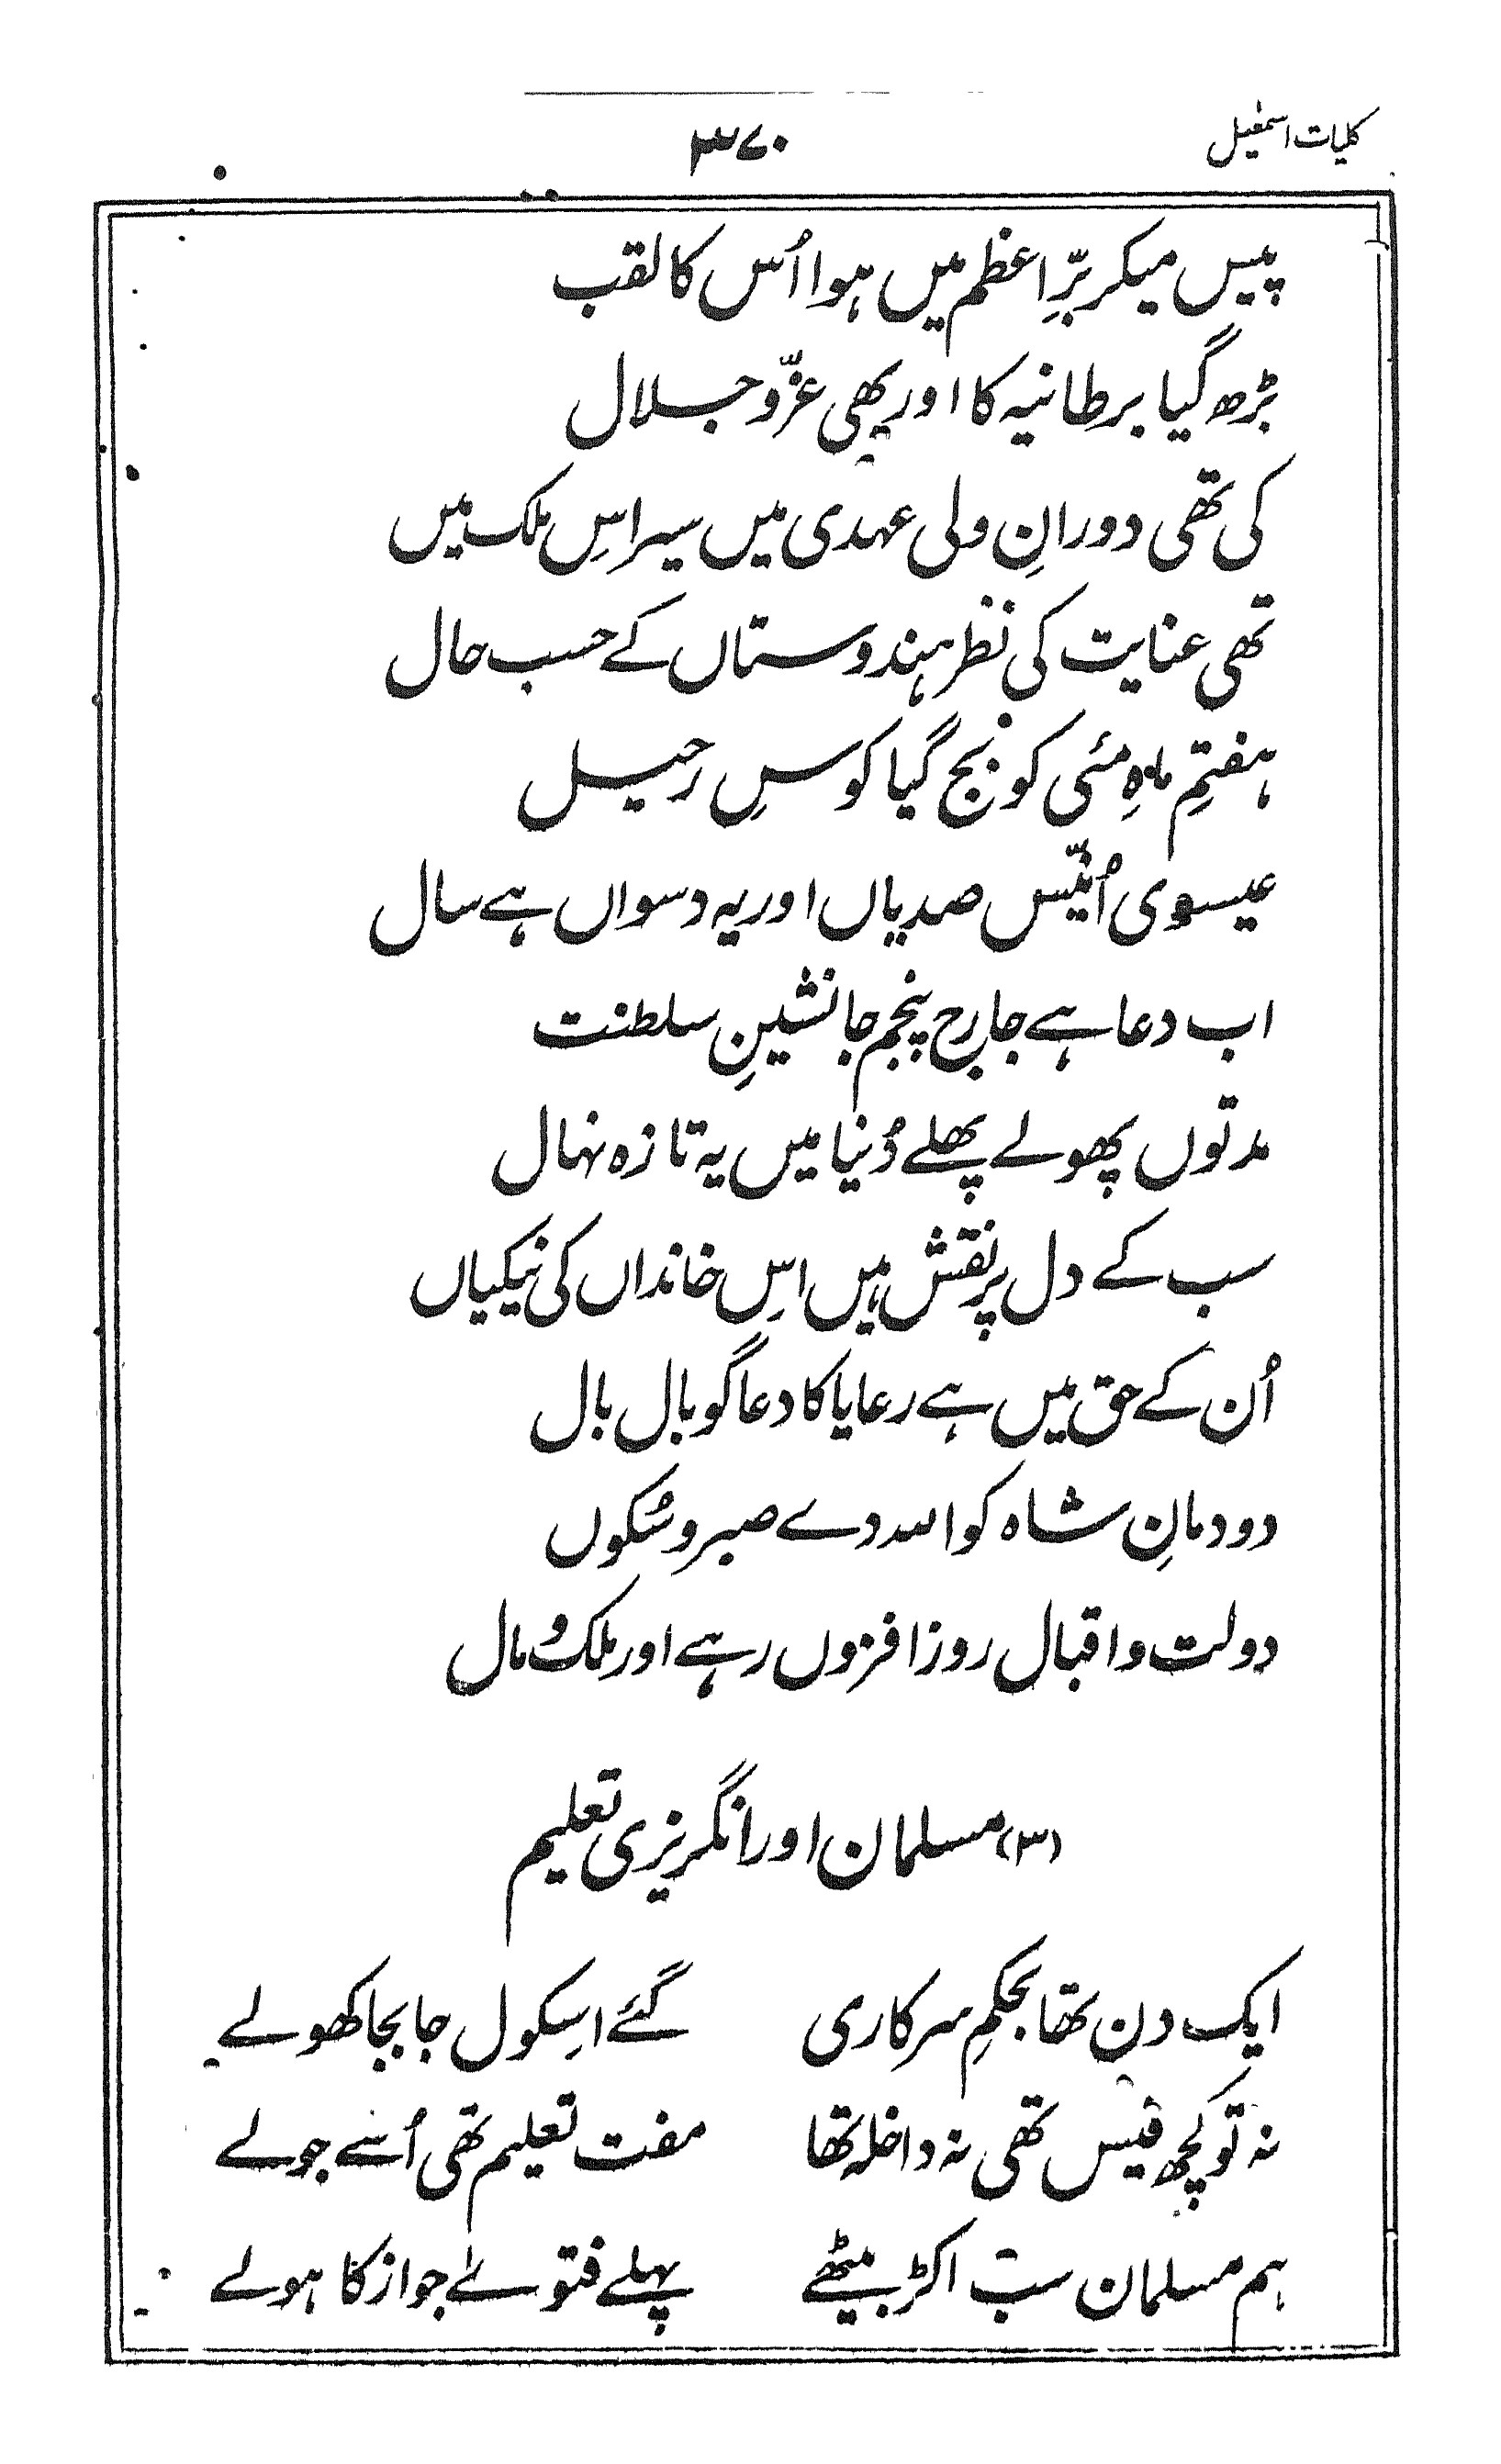 کلیات اسمٰعیل
۳۷۰
پیس میکر برِّ اعظم میں ہوا اُس کا لقب
بڑھ گیا برطانیہ کا اور بھی عزّ و جلال
کی تھی دورانِ ولی عہدی میں سیر اِس ملک میں
تھی عنایت کی نظر ہندوستاں کے حسب حال
ہفتمِ ماہِ مئی کو بج گیا کوسِ رحیل
عیسوی اُنیّس صدیاں اور یہ دسواں ہے سال
اب دعا ہے جارج پنجم جانشینِ سلطنت
مدتوں پھولے پھلے دُنیا میں یہ تازہ نہال
سب کے دل پر نقش ہیں اِس خانداں کی نیکیاں
اُن کے حق میں ہے رعایا کا دعا گو بال بال
دودمانِ شاہ کو اللہ دے صبر و سُکوں
دولت و اقبال روز افزوں رہے اور ملک و مال
(۳) مسلمان اور انگریزی تعلیم
ایک دن تھا بحکمِ سرکاری گئے اِسکول جا بجا کھولے
نہ تو کچھ فیس تھی نہ داخلہ تھا مفت تعلیم تھی اُسے جو لے
ہم مسلمان سب اکڑ بیٹھے پہلے فتوےٰ جواز کا ہولے